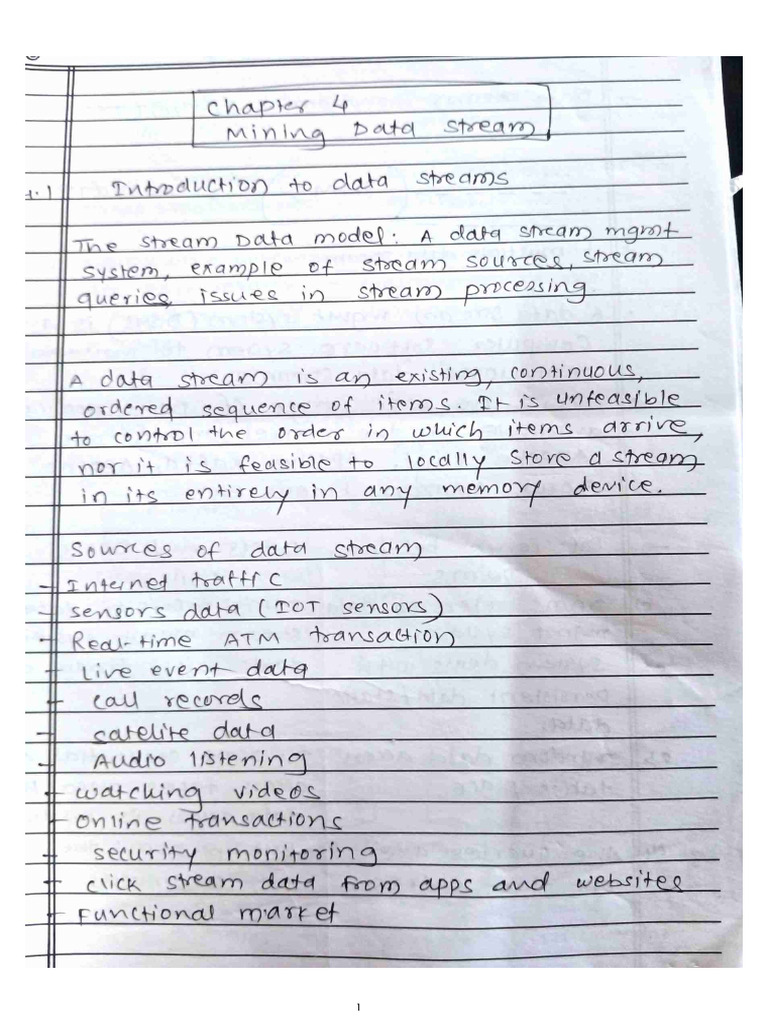 Chapter 4
Mining Data Stream
4.1 Introduction to data streams
The Stream Data model: A data stream mgmt
system, example of stream sources, stream
queries, issues in stream processing.
A data stream is an existing, continuous,
ordered sequence of items. It is unfeasible
to control the order in which items arrive,
nor it is feasible to locally store a stream
in its entirely in any memory device.
Sources of data stream
- Internet traffic
- Sensors data (IOT sensors)
- Real-time ATM transaction
- Live event data
- call records
- satelite data
- Audio listening
- watching videos
- Online transactions
- security monitoring
- click stream data from apps and websites
- Functional market
1